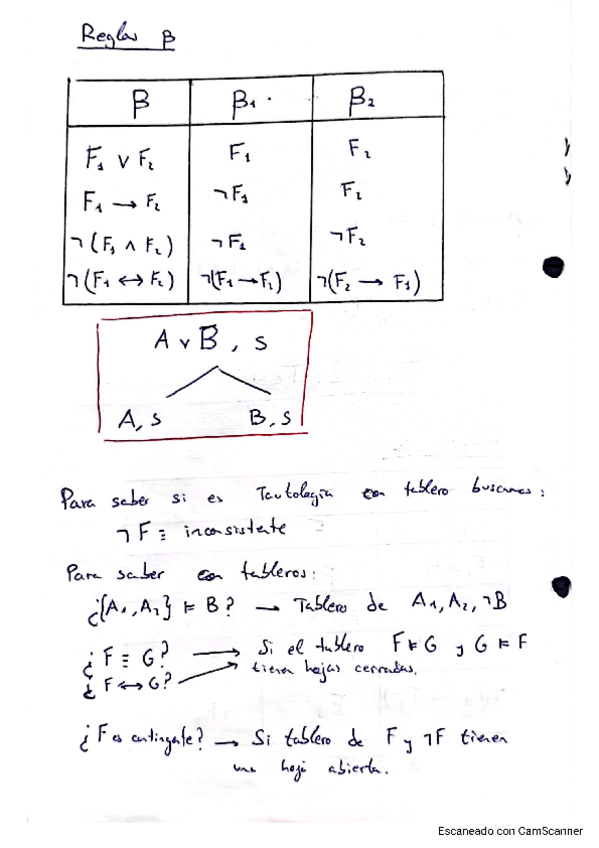 Reglas β
β β₁ β₂
F₁ ∨ F₂ F₁ F₂
F₁ → F₂ ¬F₁ F₂
¬(F₁ ∧ F₂) ¬F₁ ¬F₂
¬(F₁ ↔ F₂) ¬(F₁ → F₂) ¬(F₂ → F₁)
A ∨ B, s
A, s B, s
Para saber si es Tautología con tablero buscamos:
¬F ≡ inconsistente
Para saber con tableros:
¿{A₁, A₂} ⊨ B? → Tablero de A₁, A₂, ¬B
¿F ≡ G? → Si el tablero F ⊨ G y G ⊨ F
¿F ↔ G? → tienen hojas cerradas.
¿F es contingente? → Si tablero de F y ¬F tienen
una hoja abierta.
Escaneado con CamScanner